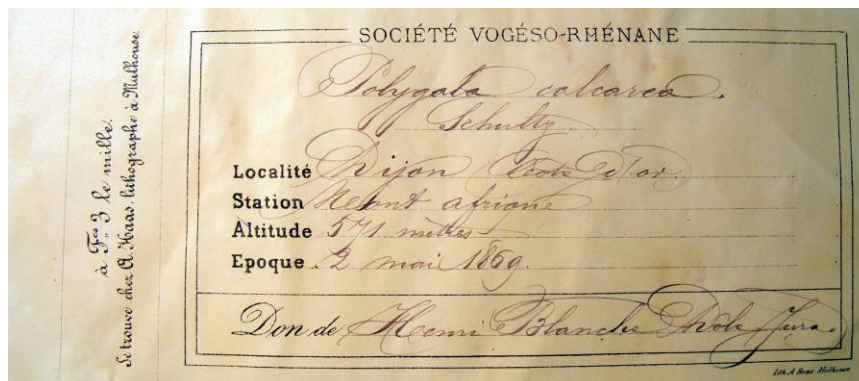 à Fcs 3 le mille.
Se trouve chez A. Haas, lithographe à Mulhouse.
SOCIÉTÉ VOGÉSO-RHÉNANE
Polygala calcarea.
Schultz
Localité Dijon Cote d'or.
Station Mont afrique
Altitude 571 mètres
Epoque . 2 mai 1869.
Don de Henri Blanche Dole Jura.
Lith. A. Haas Mulhouse